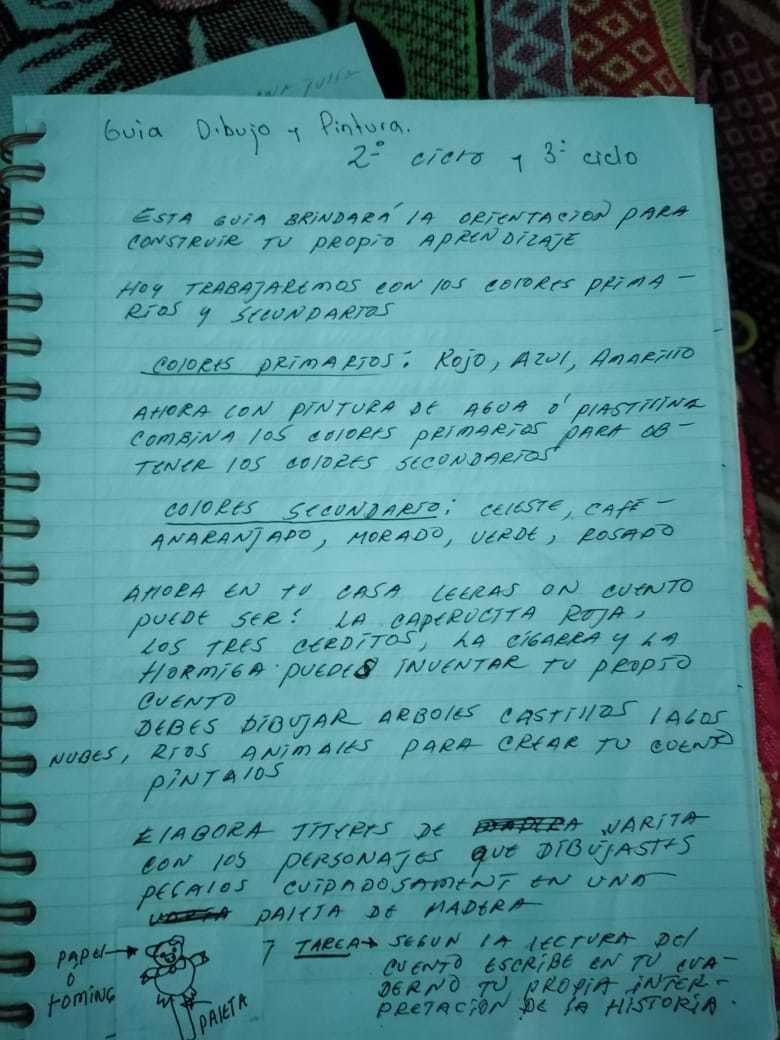 Guia Dibujo y Pintura.
2º ciclo y 3º ciclo
ESTA GUIA BRINDARÁ LA ORIENTACION PARA
CONSTRUIR TU PROPIO APRENDIZAJE
HOY TRABAJAREMOS CON LOS COLORES PRIMA-
RIOS Y SECUNDARIOS
COLORES PRIMARIOS: ROJO, AZUL, AMARILLO
AHORA CON PINTURA DE AGUA Ó PLASTILINA
COMBINA LOS COLORES PRIMARIOS PARA OB-
TENER LOS COLORES SECUNDARIOS
COLORES SECUNDARIO: CELESTE, CAFÉ-
ANARANJADO, MORADO, VERDE, ROSADO
AHORA EN TU CASA LEERAS UN CUENTO
PUEDE SER: LA CAPERUCITA ROJA,
LOS TRES CERDITOS, LA CIGARRA Y LA
HORMIGA. PUEDES INVENTAR TU PROPIO
CUENTO
DEBES DIBUJAR ARBOLES CASTILLOS LAGOS
NUBES, RIOS ANIMALES PARA CREAR TU CUENTO
PINTALOS
ELABORA TITERES DE VARITA
CON LOS PERSONAJES QUE DIBUJASTES
PEGALOS CUIDADOSAMENT EN UNA
PALETA DE MADERA
PAPEL
O
FOMING
PALETA
TAREA → SEGUN LA LECTURA DEL
CUENTO ESCRIBE EN TU CUA-
DERNO TU PROPIA INTER-
PRETACION DE LA HISTORIA.